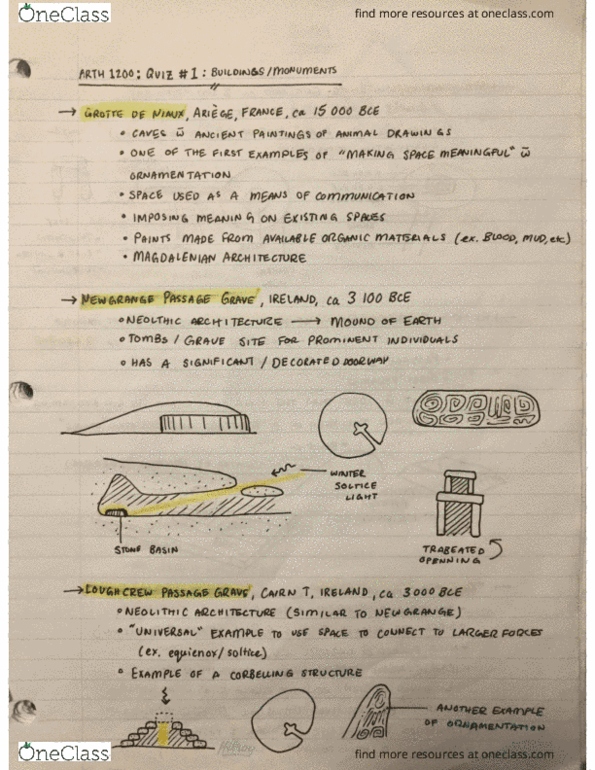 OneClass
find more resources at oneclass.com
ARTH 1200: QUIZ #1: BUILDINGS/MONUMENTS
→ GROTTE DE NIAUX, ARIÈGE, FRANCE, ca 15 000 BCE
• CAVES w̄ ANCIENT PAINTINGS OF ANIMAL DRAWINGS
• ONE OF THE FIRST EXAMPLES OF "MAKING SPACE MEANINGFUL" w̄
ORNAMENTATION
• SPACE USED AS A MEANS OF COMMUNICATION
• IMPOSING MEANING ON EXISTING SPACES
• PAINTS MADE FROM AVAILABLE ORGANIC MATERIALS (ex. BLOOD, MUD, etc)
• MAGDALENIAN ARCHITECTURE
→ NEWGRANGE PASSAGE GRAVE, IRELAND, ca 3 100 BCE
• NEOLTHIC ARCHITECTURE → MOUND OF EARTH
• TOMBS / GRAVE SITE FOR PROMINENT INDIVIDUALS
• HAS A SIGNIFICANT / DECORATED DOORWAY
WINTER
SOLTICE
LIGHT
STONE BASIN
TRABEATED
OPENNING
→ LOUGHCREW PASSAGE GRAVE, CAIRN T, IRELAND, ca 3000 BCE
• NEOLITHIC ARCHITECTURE (SIMILAR TO NEWGRANGE)
• "UNIVERSAL" EXAMPLE TO USE SPACE TO CONNECT TO LARGER FORCES
(ex. equienox/ soltice)
• EXAMPLE OF A CORBELLING STRUCTURE
ANOTHER EXAMPLE
OF ORNAMENTATION
OneClass
find more resources at oneclass.com